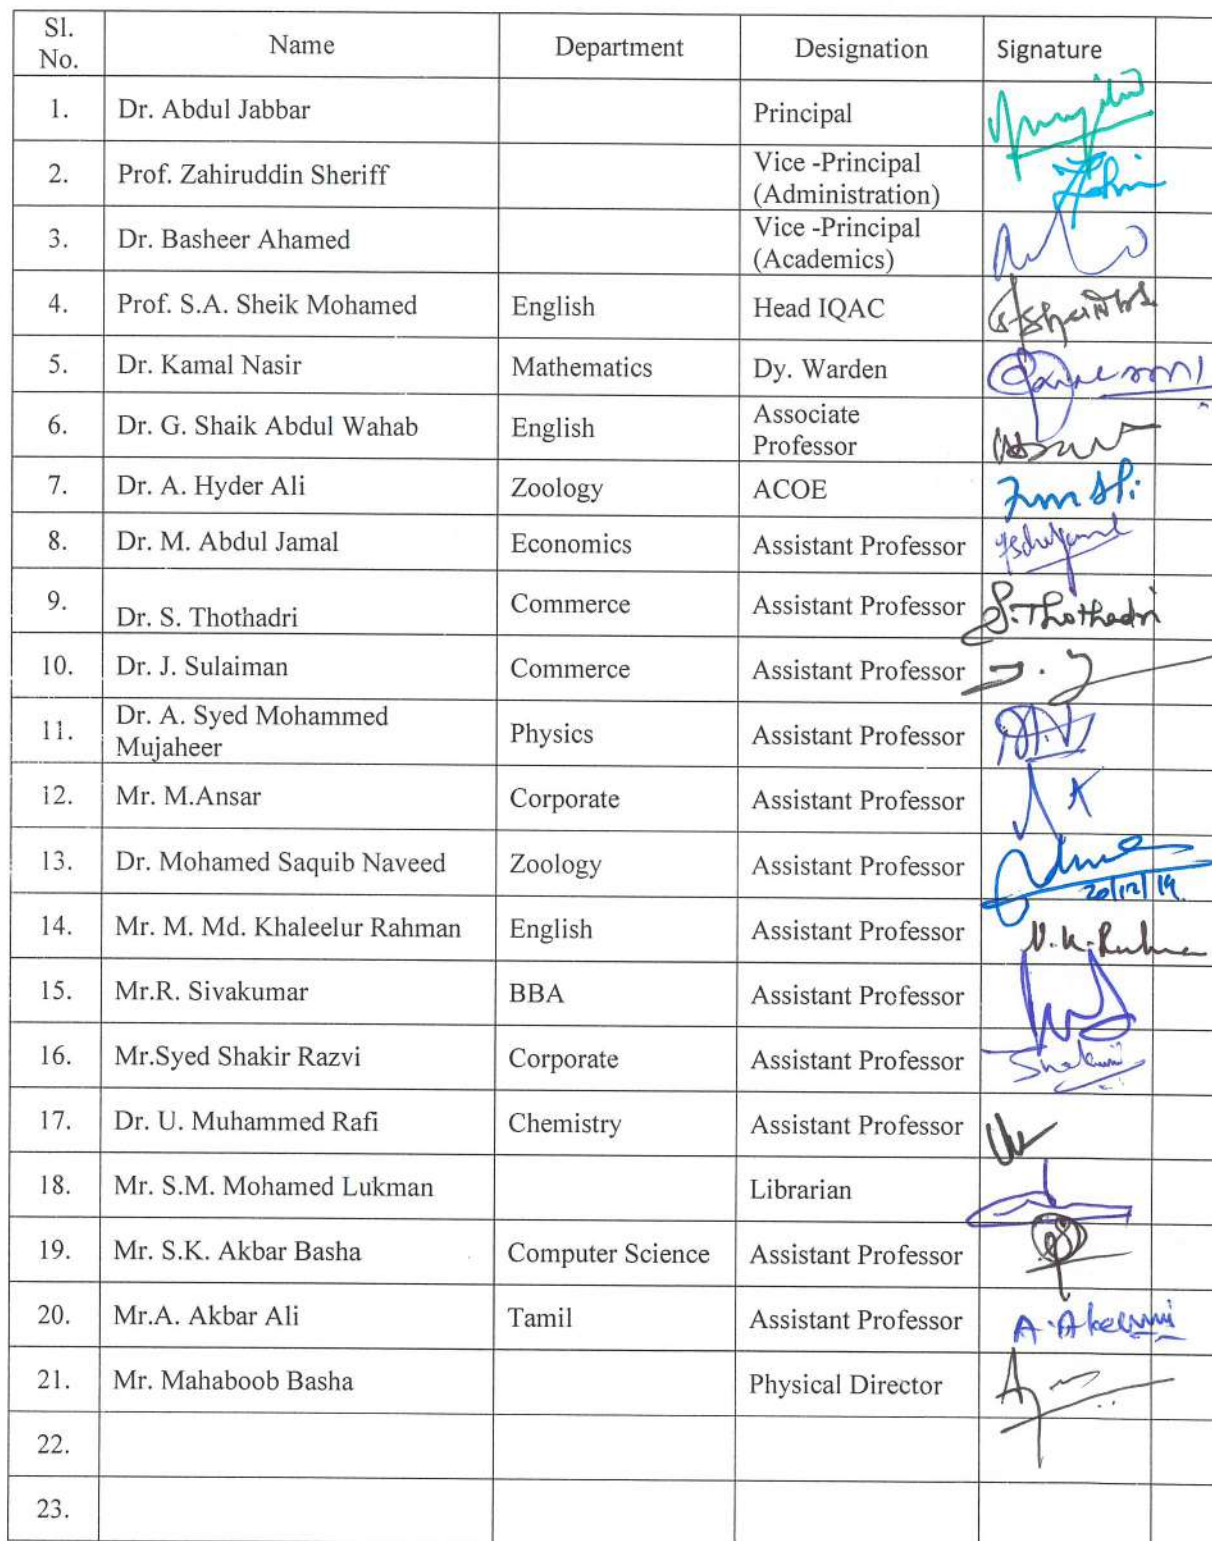 Sl. No. Name Department Designation Signature
1. Dr. Abdul Jabbar Principal
2. Prof. Zahiruddin Sheriff Vice -Principal (Administration)
3. Dr. Basheer Ahamed Vice -Principal (Academics)
4. Prof. S.A. Sheik Mohamed English Head IQAC
5. Dr. Kamal Nasir Mathematics Dy. Warden
6. Dr. G. Shaik Abdul Wahab English Associate Professor
7. Dr. A. Hyder Ali Zoology ACOE
8. Dr. M. Abdul Jamal Economics Assistant Professor
9. Dr. S. Thothadri Commerce Assistant Professor S.Thothadri
10. Dr. J. Sulaiman Commerce Assistant Professor
11. Dr. A. Syed Mohammed Mujaheer Physics Assistant Professor
12. Mr. M.Ansar Corporate Assistant Professor
13. Dr. Mohamed Saquib Naveed Zoology Assistant Professor 20/12/19
14. Mr. M. Md. Khaleelur Rahman English Assistant Professor
15. Mr.R. Sivakumar BBA Assistant Professor
16. Mr.Syed Shakir Razvi Corporate Assistant Professor
17. Dr. U. Muhammed Rafi Chemistry Assistant Professor
18. Mr. S.M. Mohamed Lukman Librarian
19. Mr. S.K. Akbar Basha Computer Science Assistant Professor
20. Mr.A. Akbar Ali Tamil Assistant Professor
21. Mr. Mahaboob Basha Physical Director
22.
23.